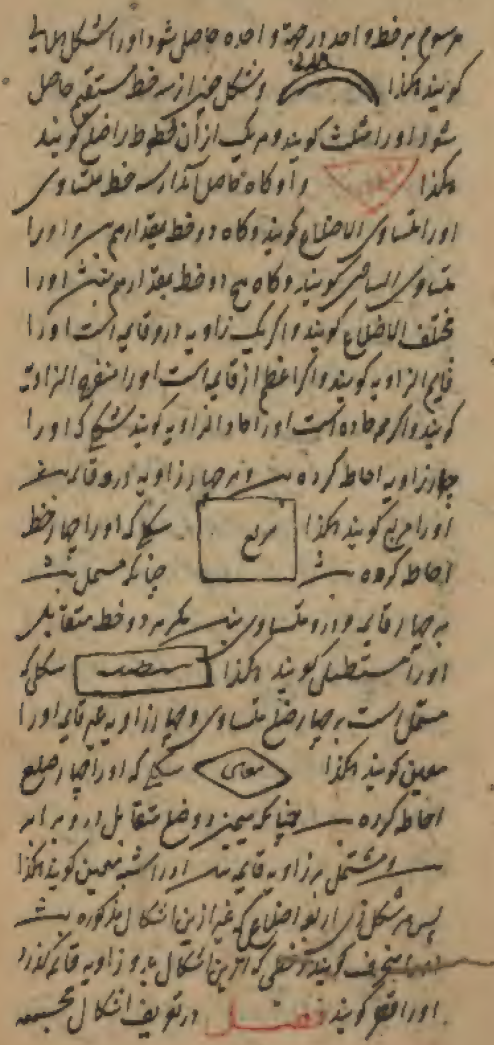 مرسوم بر خط واحد در جهة واحده حاصل شود اورا شکل هلالی
کویند هکذا هلالی و شکل از سه خط مستقیم حاصل
شود اورا مثلث کویند و هر یک از آن خطوط را ضلع کویند
هکذا مثلث و او کاه حاصل آید از سه خط متساوی
اورا متساوی الاضلاع کویند و کاه دو خط بمقدار هم و اورا
متساوی الساقین کویند و کاه هیچ دو خط بمقدار هم نباشد اورا
مختلف الاضلاع کویند و اکر یک زاویه درو قایمه است اورا
قایم الزاویه کویند و اکر اعظم از قایمه است اورا منفرج الزاویه
کویند و اکر همه حاده است اورا حاد الزاویه کویند شکلی که اورا
چهار زاویه احاطه کرده و هر چهار زاویه درو قایمه
اورا مربع کویند هکذا مربع شکلی که اورا چهار خط
احاطه کرده باشد چنانکه مشتمل باشد
بر چهار قایمه و درو متساوی نباشد مکر هر دو خط متقابلین
اورا مستطیل کویند هکذا مستطیل شکلی که
مشتمل است بر چهار ضلع متساوی و چهار زاویه غیر قایمه اورا
معین کویند هکذا معین شکلی که اورا چهار ضلع
احاطه کرده چنانکه دو ضلع متقابل او برابر
و مشتمل بر زاویه قایمه نیست اورا شبه معین کویند هکذا
پس هر شکل ذی اربع اضلاع که غیر ازین اشکال مذکوره باشد
اورا منحرف کویند و خطی که ازین اشکال بدو زاویه کذرد
اورا قطر کویند فصل در تعریف اشکال مجسمه